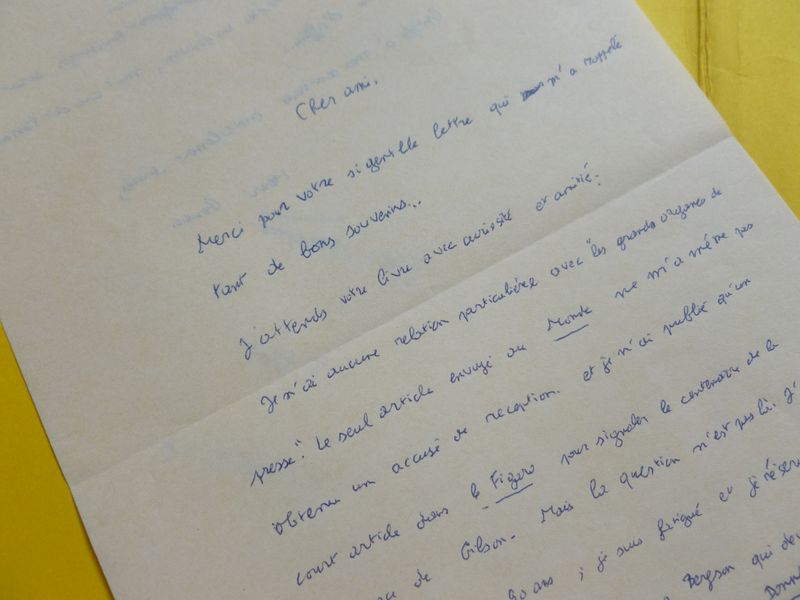 Cher ami,
Merci pour votre si gentille lettre qui m'a rappelé
tant de bons souvenirs...
J'attends votre livre avec curiosité et amitié.
Je n'ai aucune relation particulière avec "les grands organes de
presse". Le seul article envoyé au Monde ne m'a même pas
obtenu un accusé de réception. et je n'ai publié qu'un
court article dans le Figaro pour signaler le centenaire de la
de Gilson. Mais la question n'est pas là. J'
90 ans ; je suis fatigué et je réserve
Bergson qui de